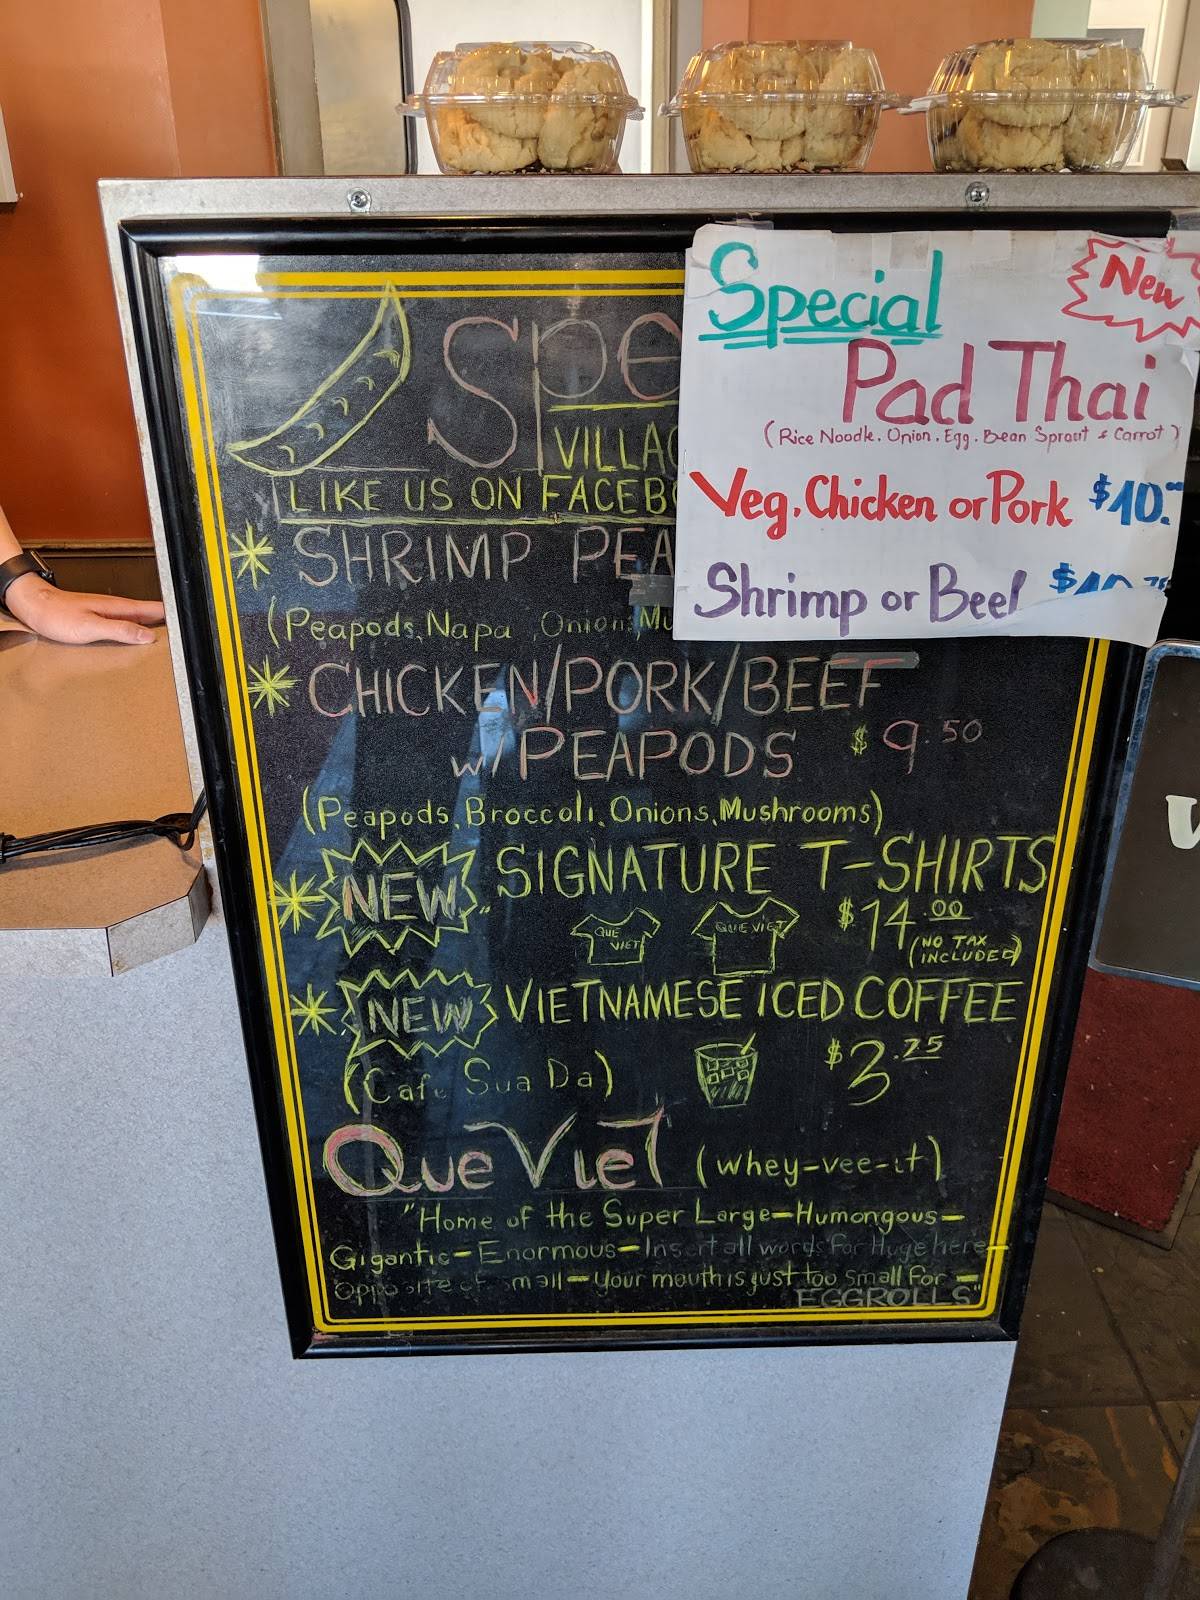 Special
New
Pad Thai
(Rice Noodle. Onion. Egg. Bean Sprout & Carrot)
Veg. Chicken or Pork $10.
Shrimp or Beef
Spe
VILLAG
LIKE US ON FACEB
SHRIMP PEA
(Peapods, Napa, Onion, Mu
CHICKEN/PORK/BEEF
w/ PEAPODS $9.50
(Peapods, Broccoli, Onions, Mushrooms)
NEW SIGNATURE T-SHIRTS
QUE VIET QUE VIET $14.00
(NO TAX
INCLUDED)
NEW VIETNAMESE ICED COFFEE
(Cafe Sua Da) $3.75
Que Viet (Whey-vee-it)
"Home of the Super Large-Humongous-
Gigantic-Enormous-Insert all words for Huge here-
Opposite of small-Your mouth is just too small for-
EGGROLLS"